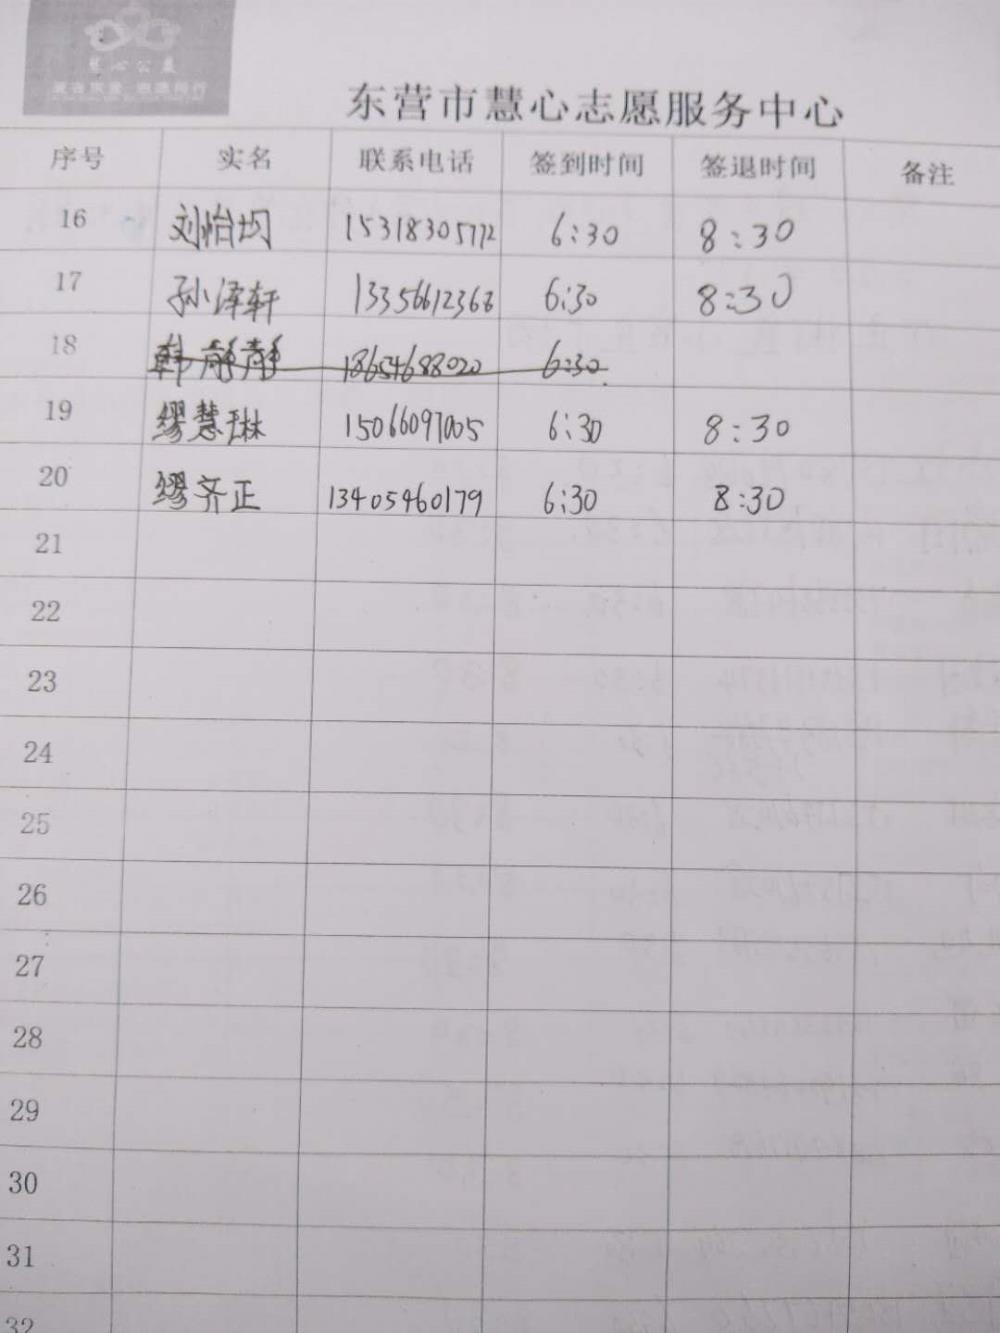 慧心公益
东营市慧心志愿服务中心
序号 实名 联系电话 签到时间 签退时间 备注
16 刘怡均 15318305772 6:30 8:30
17 孙泽轩 13356612368 6:30 8:30
18 韩静静 18654688020 6:30
19 缪慧琳 15066097005 6:30 8:30
20 缪齐正 13405460179 6:30 8:30
21
22
23
24
25
26
27
28
29
30
31
32